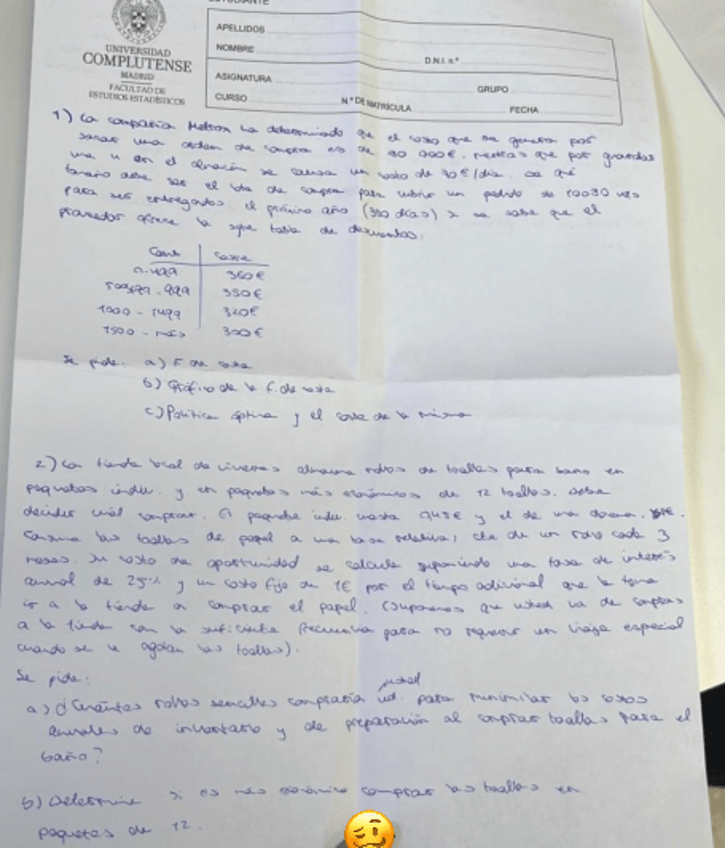 ESTUDIANTE
UNIVERSIDAD
COMPLUTENSE
MADRID
FACULTAD DE
ESTUDIOS ESTADÍSTICOS
APELLIDOS
NOMBRE
D.N.I. n.º
ASIGNATURA
GRUPO
CURSO
N.º DE MATRÍCULA
FECHA
1) La compañía ha determinado que el costo que se genera por
una orden de compra es de mientras que por guardar
una u en el almacén se causa un costo de €/día. De qué
tamaño debe ser el lote de compra para cubrir un pedido de
para ser entregados el próximo año si se sabe que el
proveedor ofrece la tabla de descuentos:
Cant Coste
0-499 360€
-999 350€
1000-1499 320€
1500-más 300€
Se pide: a) F. de coste
b) Gráfico de la f. de coste
c) Política óptima y el coste de la misma
2) La tienda local de víveres almacena rollos de toallas para baño en
paquetes indiv. y en paquetes más económicos de 12 toallas. Debe
decidir cuál comprar. El paquete indiv. cuesta 0,45€ y el de una docena,
Consume las toallas de papel a una tasa relativa, cte de un rollo cada 3
meses. Su costo de oportunidad se calcula suponiendo una tasa de interés
anual de 25% y un costo fijo de 1€ por el tiempo adicional que le toma
ir a la tienda a comprar el papel. (Suponemos que usted va de compras
a la tienda con la suficiente frecuencia para no requerir un viaje especial
cuando se le agotan las toallas).
Se pide:
a) ¿Cuántos rollos sencillos compraría ud. usted para minimizar los costos
anuales de inventario y de preparación al comprar toallas para el
baño?
b) Determine si es más económico comprar las toallas en
paquetes de 12.